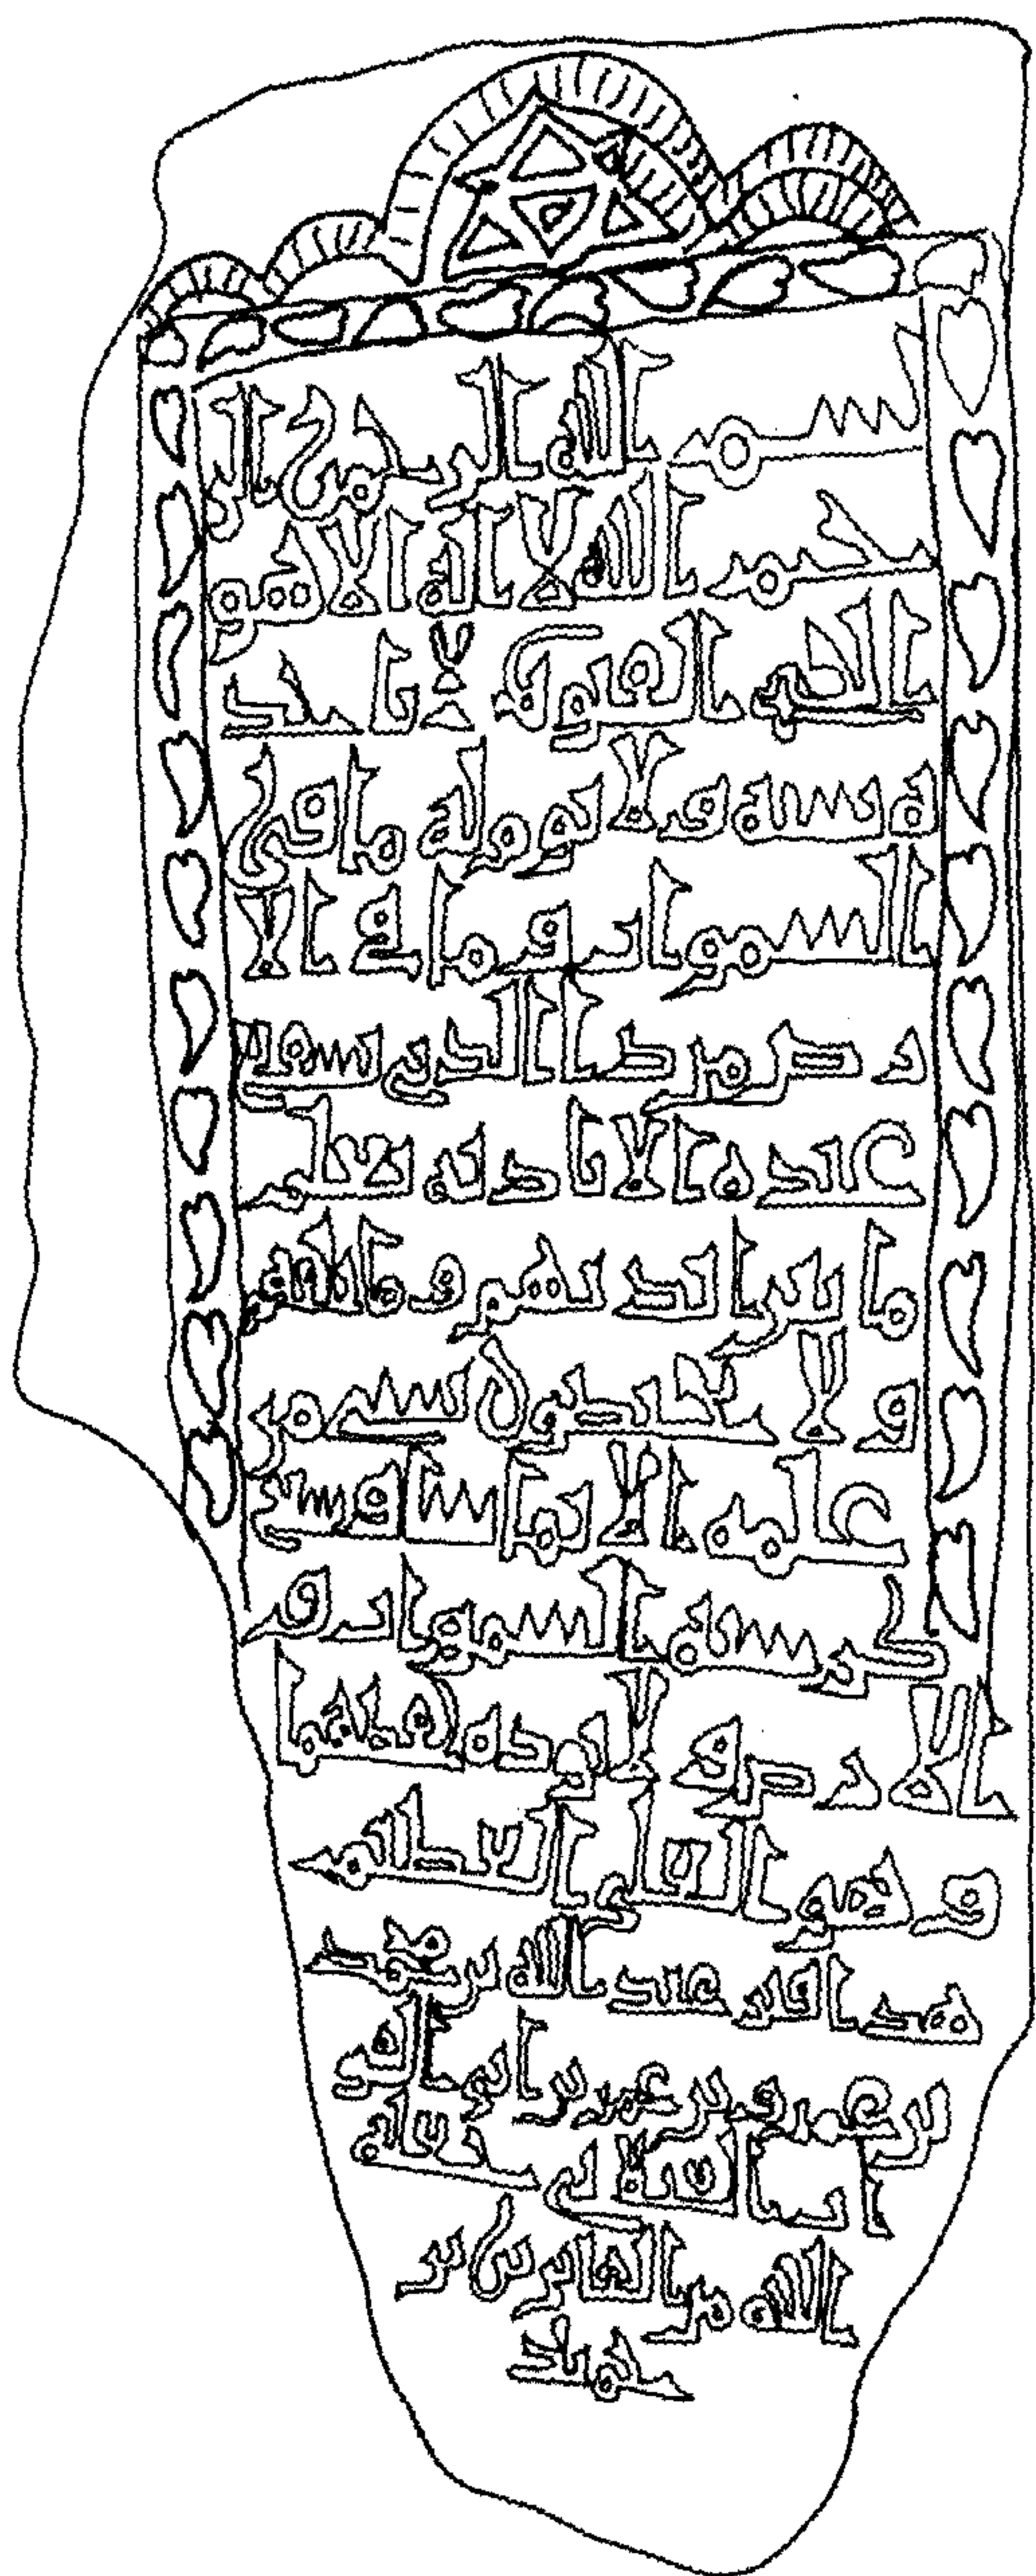 بسم الله الرحمن الر
حيم الله لا اله الا هو
الحي القيوم لا تاخذ
ه سنة ولا نوم له ما في
السموات وما في الا
رض من ذا الذي يشفع
عنده الا باذنه يعلم
ما بين ايديهم وما خلفهم
ولا يحيطون بشي من
علمه الا بما شا وسع
كرسيه السموات و
الارض ولا يوده حفظهما
وهو العلي العظيم
هذا قبر عبد الله بن محمد
بن عمرو بن عمر بن
الله من